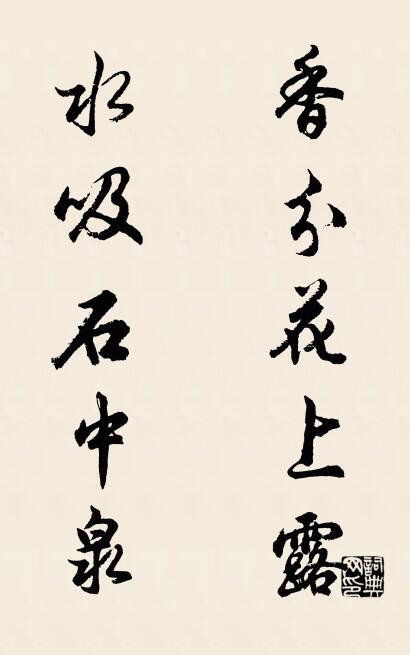 香分花上露
水吸石中泉
詞典
网印